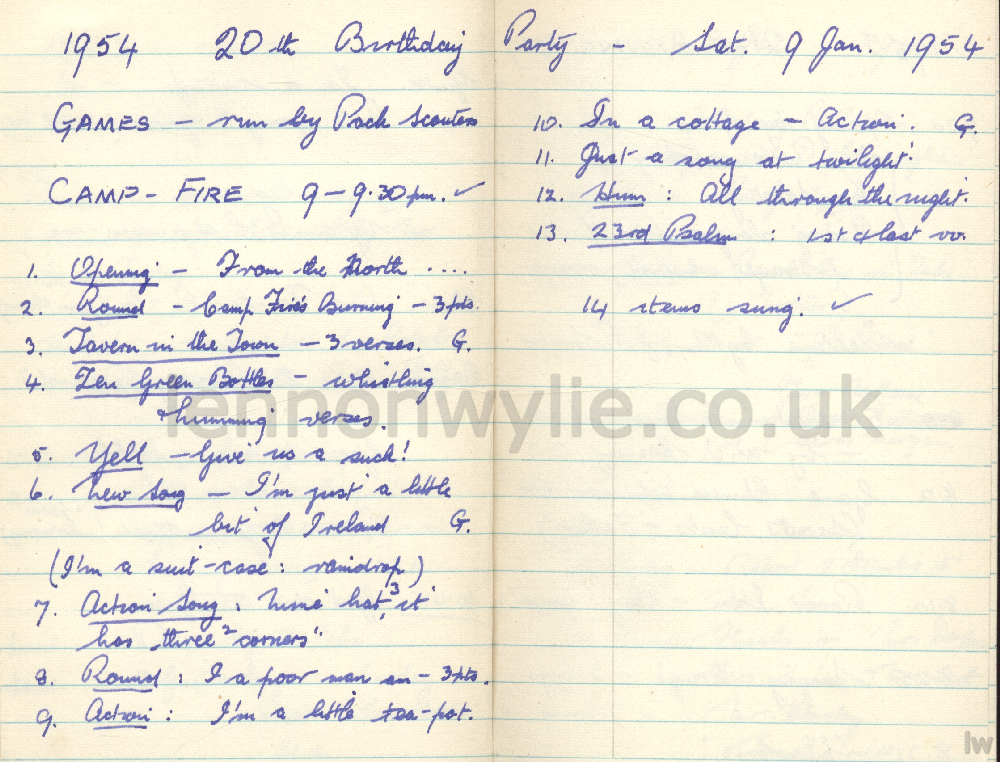 1954 20th Birthday Party - Sat. 9 Jan. 1954
GAMES - run by Pack Scouters
CAMP-FIRE 9-9·30pm. ✓
1. Opening - From the North ....
2. Round - Camp Fire's Burning - 3 pts.
3. Tavern in the Town - 3 verses. G.
4. Ten Green Bottles - whistling
& humming verses.
5. Yell - Give us a suck!
6. New Song - I'm just a little
bit of Ireland G.
(I'm a suit-case : raindrop)
7. Action Song : "Mine hat, 3 it
has three 2 corners".
8. Round : I a poor man am - 3 pts.
9. Action : I'm a little tea-pot.
10. In a cottage - Action. G.
11. Just a song at twilight.
12. Hum : All through the night.
13. 23rd Psalm : 1st & last vv.
14 items sung. ✓
lennonwylie.co.uk
lw